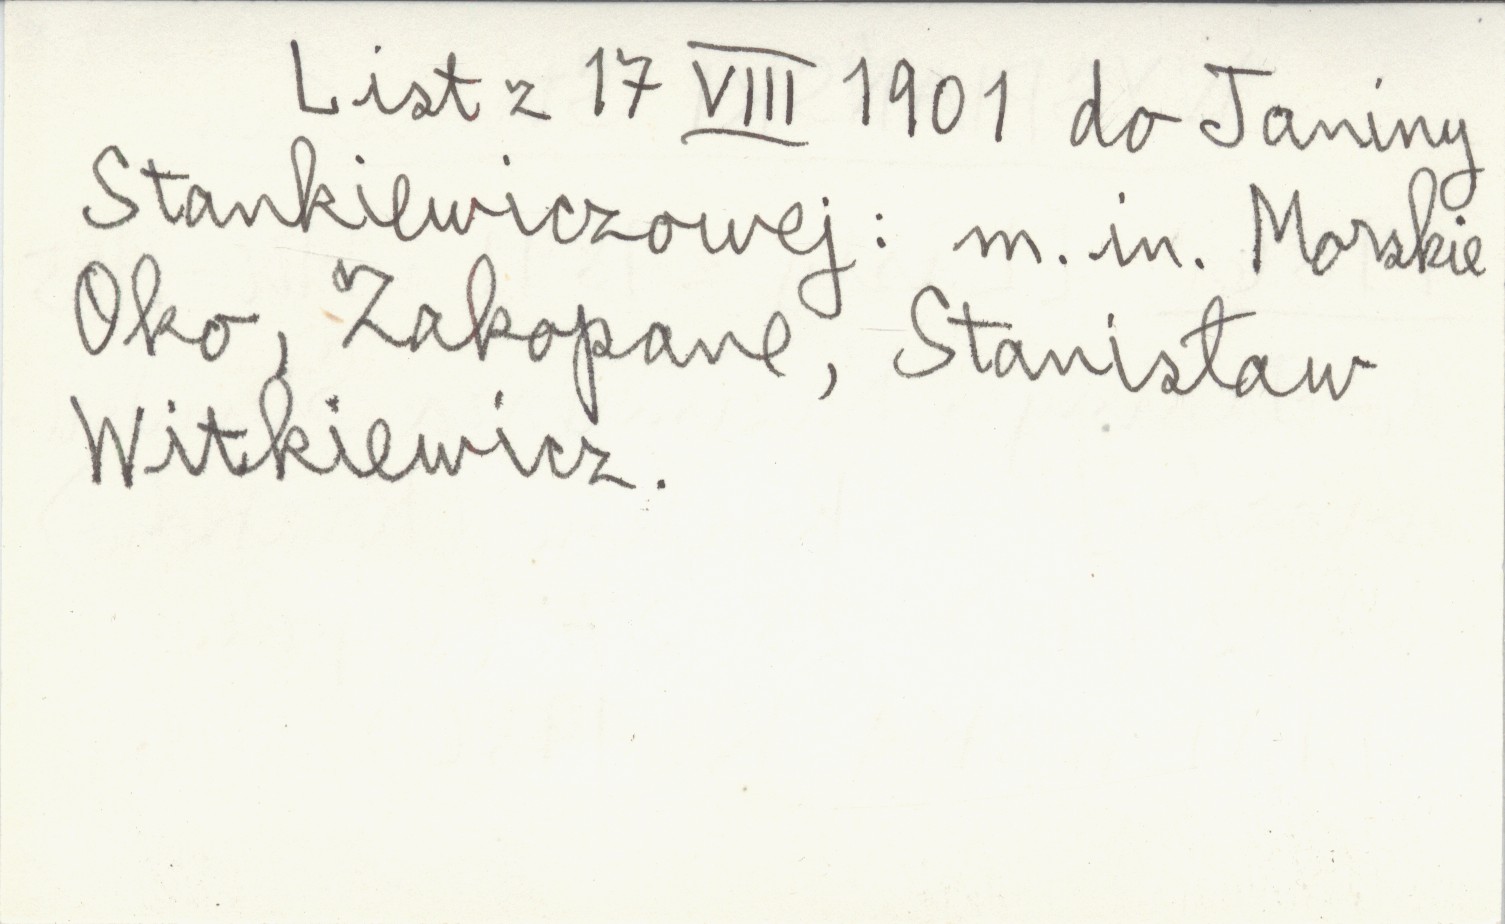 List z 17 VIII 1901 do Janiny
Stankiewiczowej: m. in. Morskie
Oko, Zakopane, Stanisław
Witkiewicz.